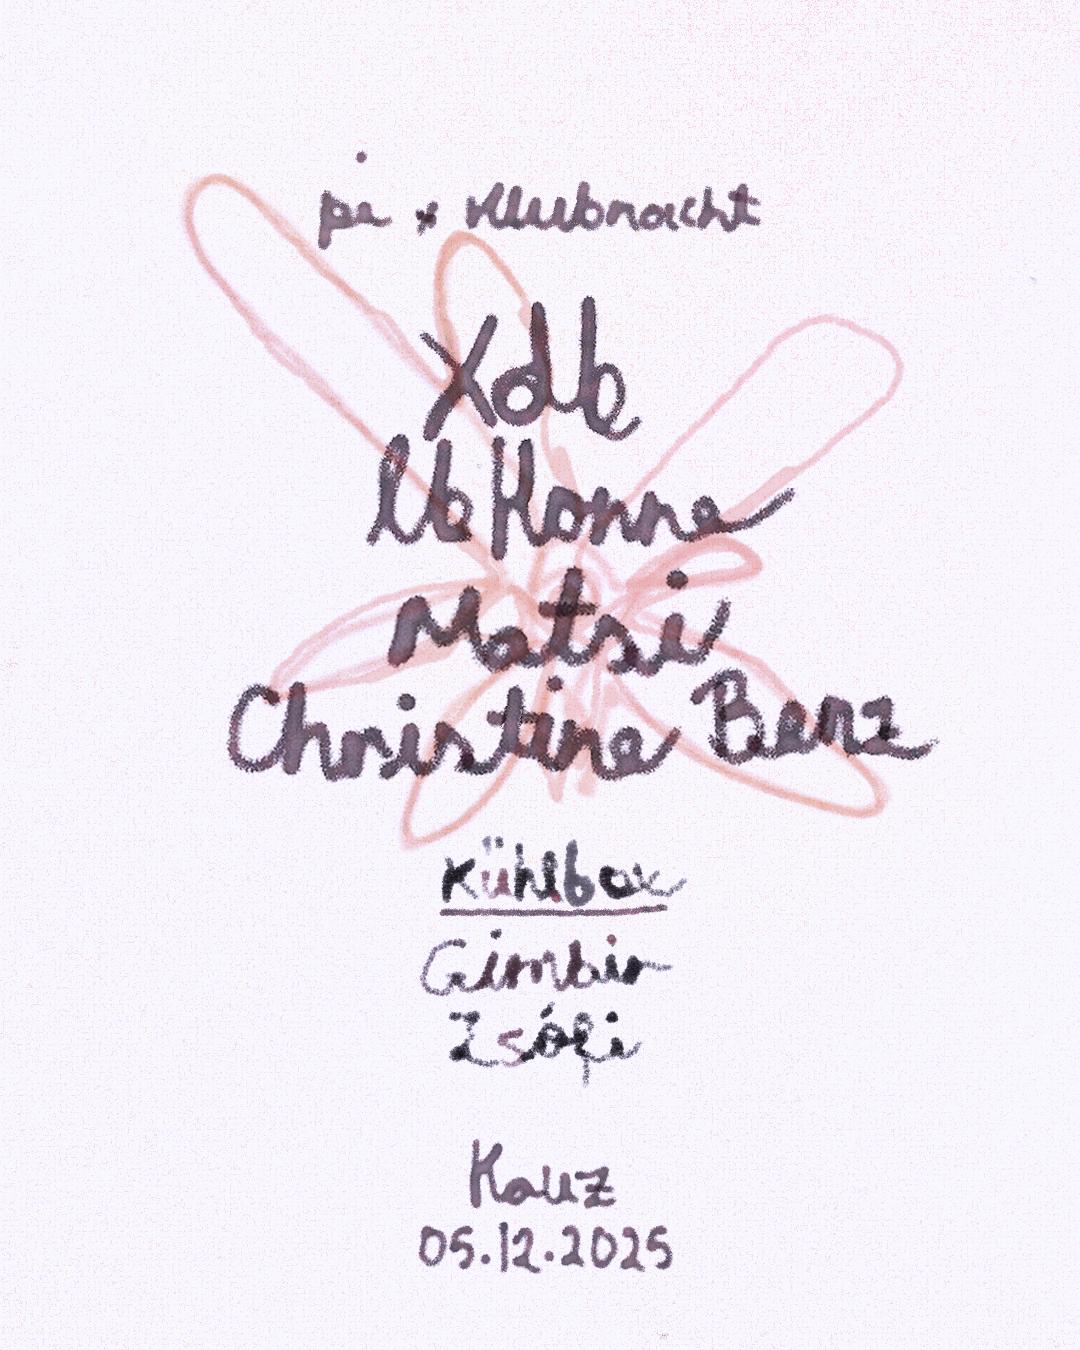 pi x Klubnacht
Xdb
lb Honne
Matsi
Christine Benz
Kühlbox
Gimbir
Zsófi
Kauz
05.12.2025